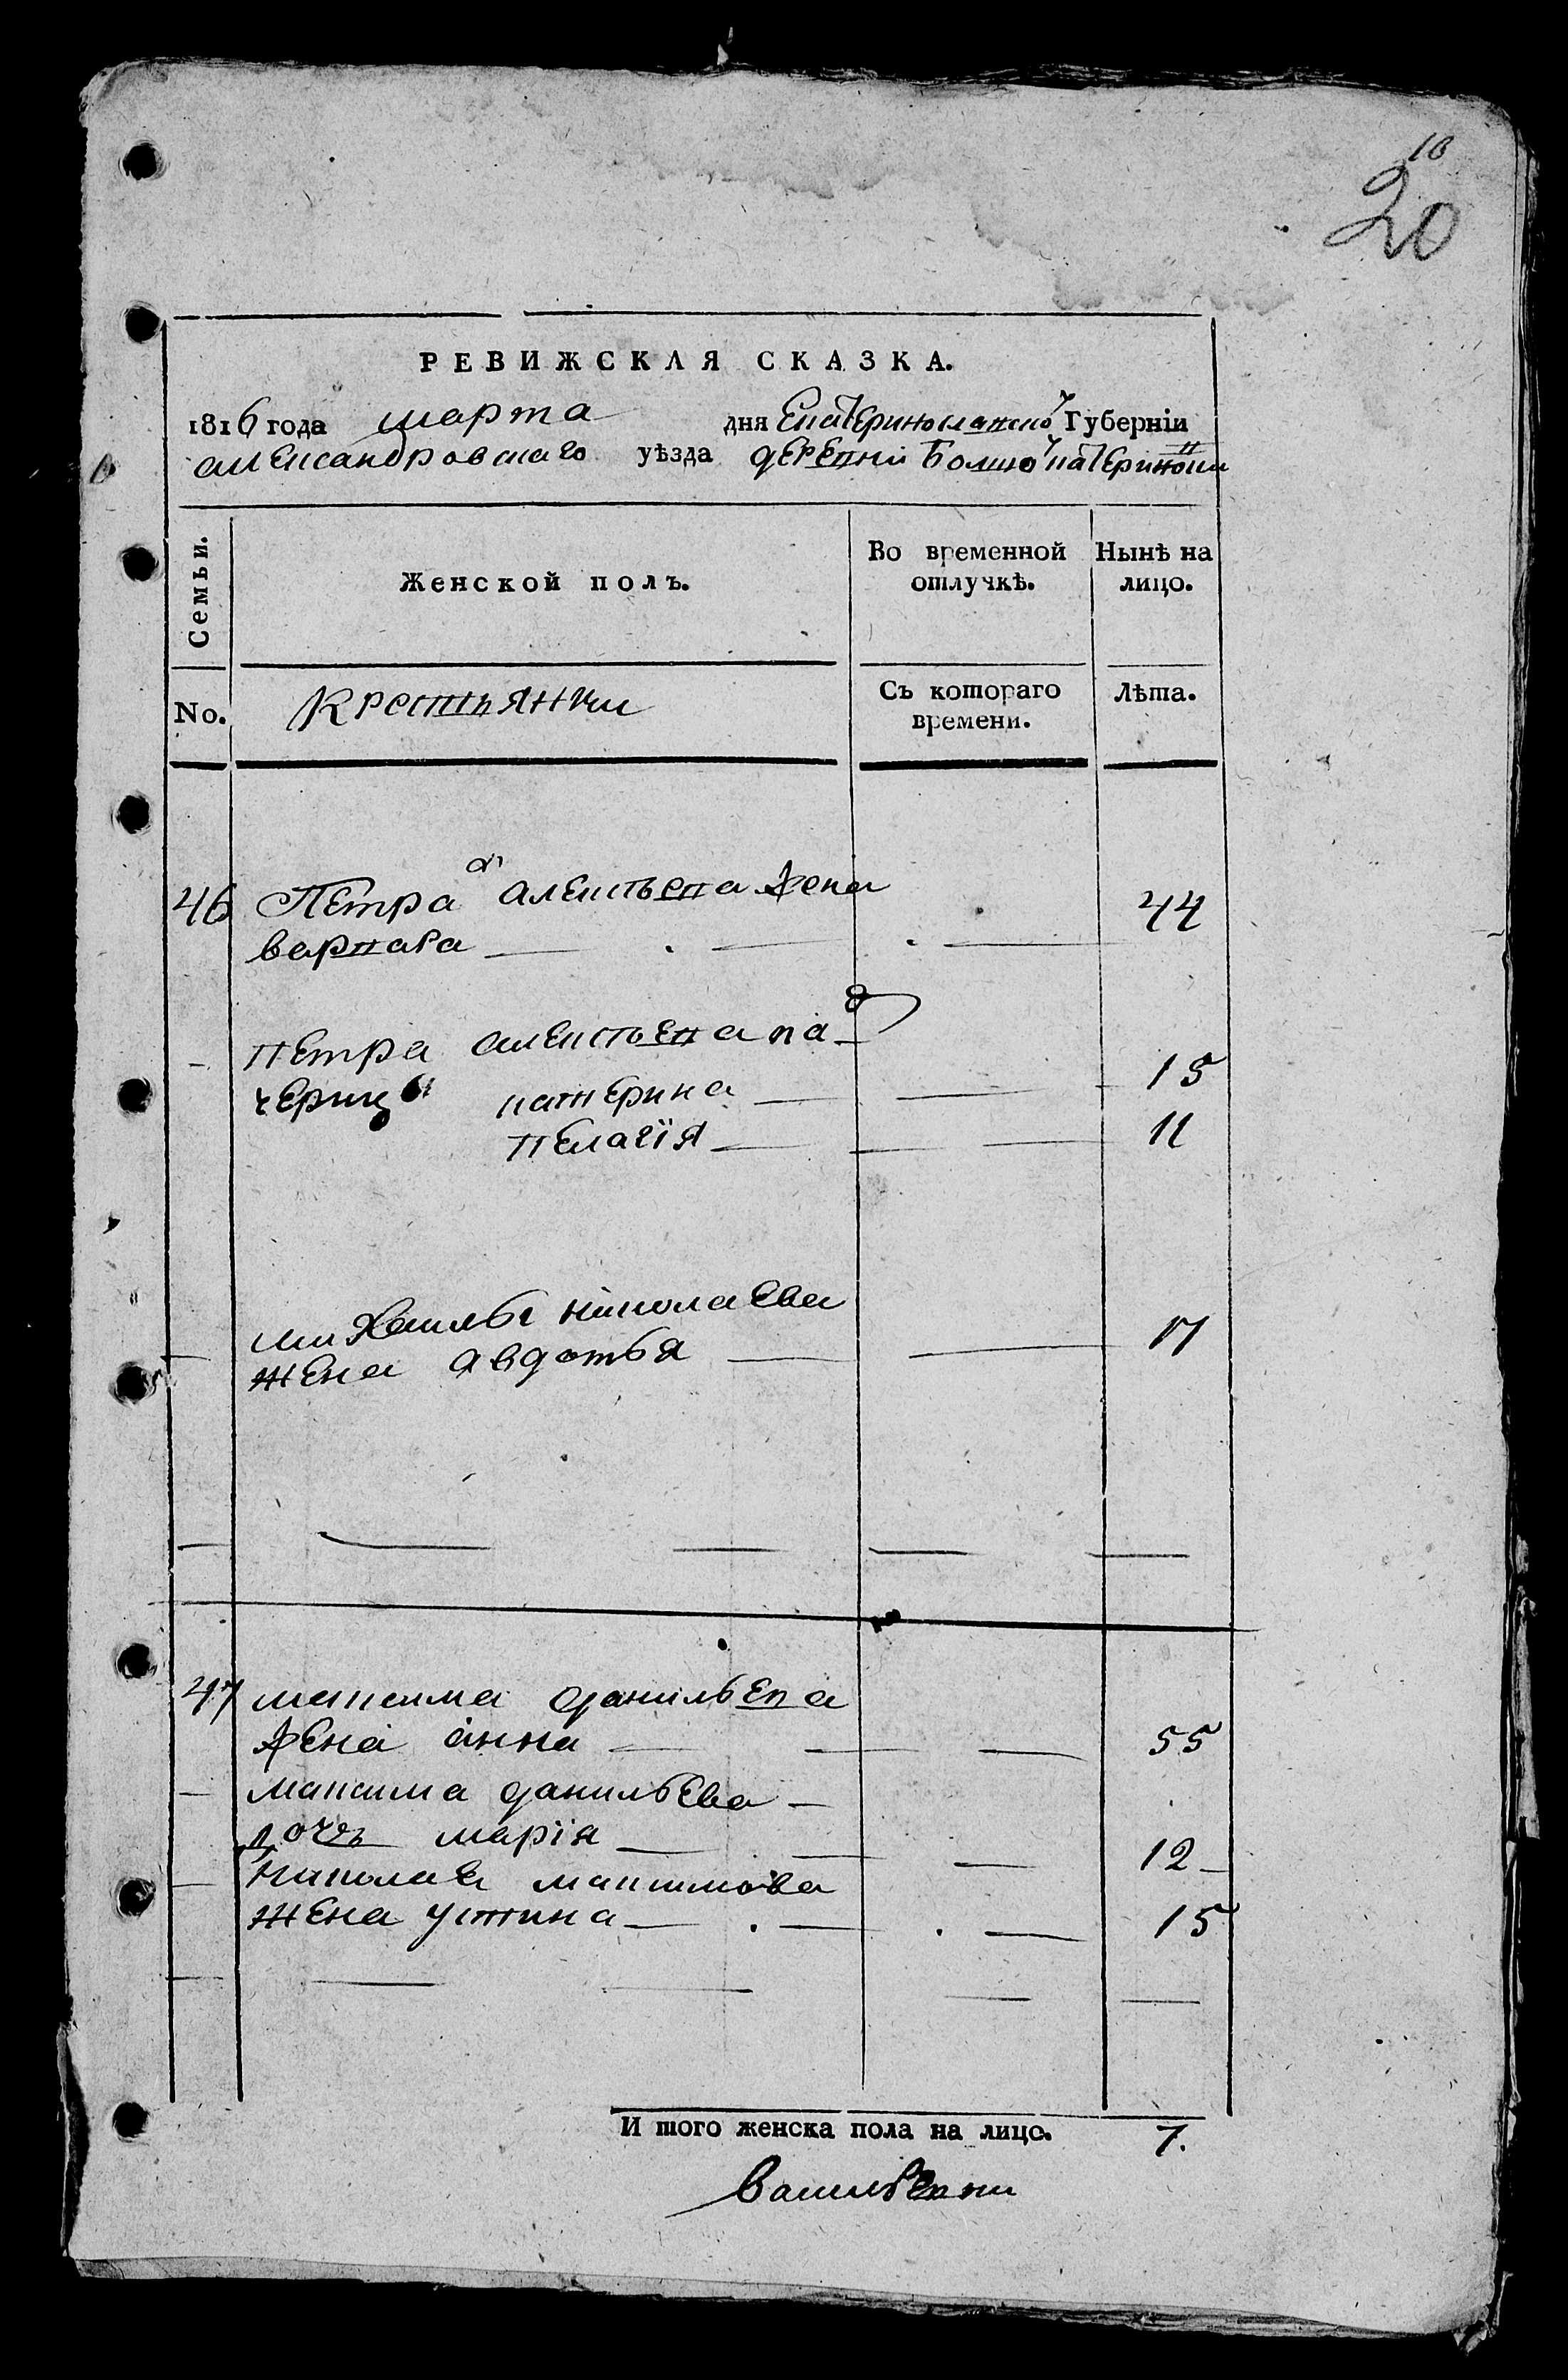 10
20
РЕВИЖСКАЯ СКАЗКА.
1816 года марта дня Екатеринославской Губернїи
александровскаго уѣзда деревни Болшой катериновки
Семьи.
Женской полъ.
Во временной отлучкѣ.
Нынѣ на лицо.
No.
Крестьянки
Съ котораго времени.
Лѣта.
46 Петра алексѣева жена
варвара 44
петра алексѣева па д
черицы катерина 15
пелагїя 11
михайлы николаева
жена авдотья 17
47 максима данильева
жена анна 55
максима данильева
дочь марїя 12
николая максимова
жена устина 15
И того женска пола на лицо. 7.